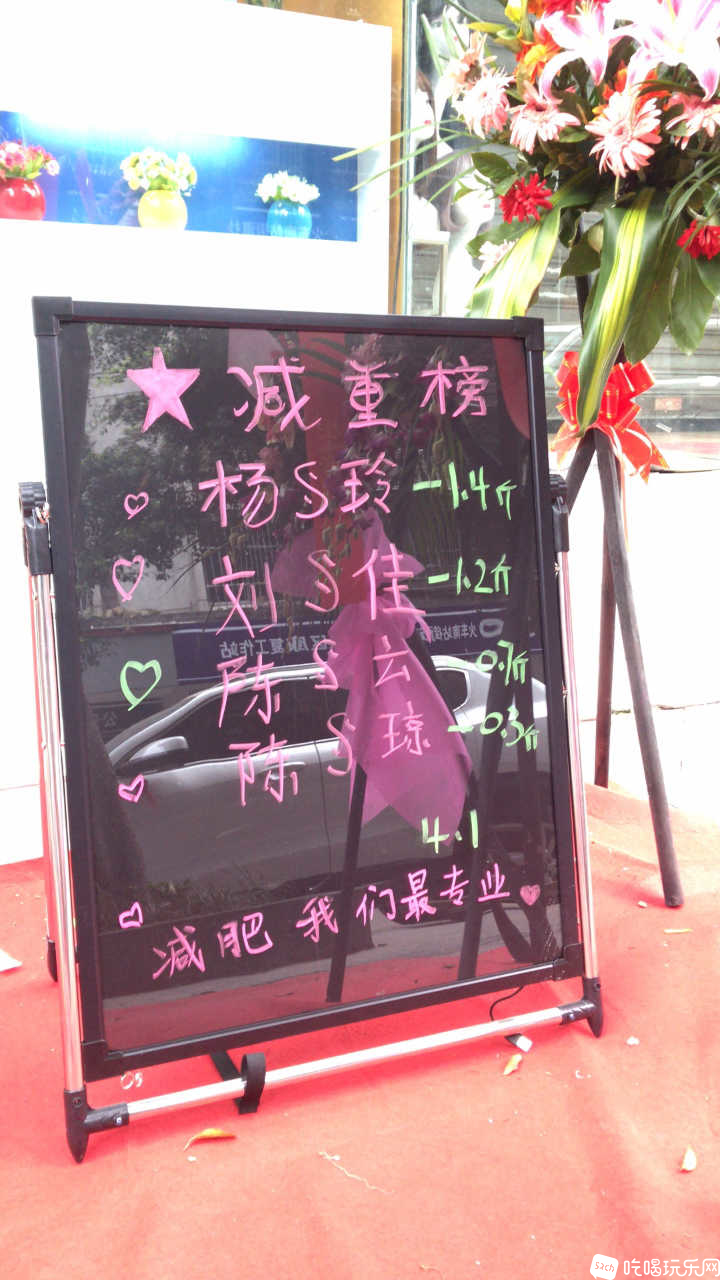 ★ 减重榜
杨§玲 -1.4斤
刘§佳 -1.2斤
陈§云 -0.7斤
陈§琼 -0.3斤
4.1
减肥 我们最专业
52ch 吃喝玩乐网